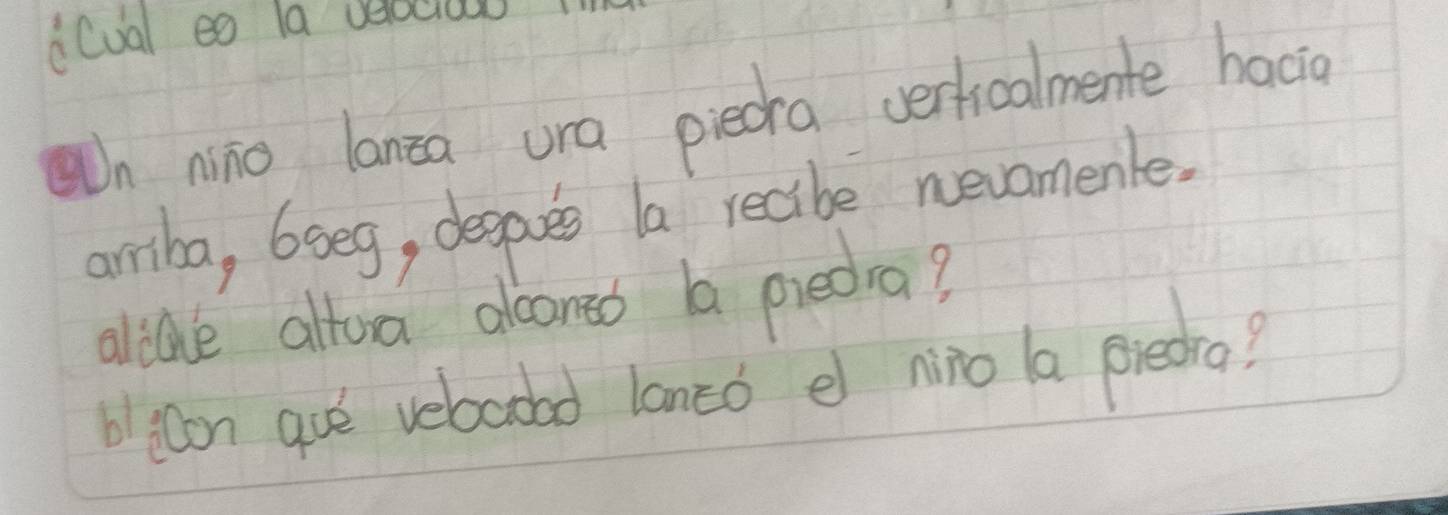 ¿Cuál es la velocidad
Un niño lanza una piedra verticalmente hacia
arriba, 6seg, después la recibe nuevamente.
a) ¿Qué altura alcanzó la piedra?
b) ¿Con qué velocidad lanzó el niño la piedra?